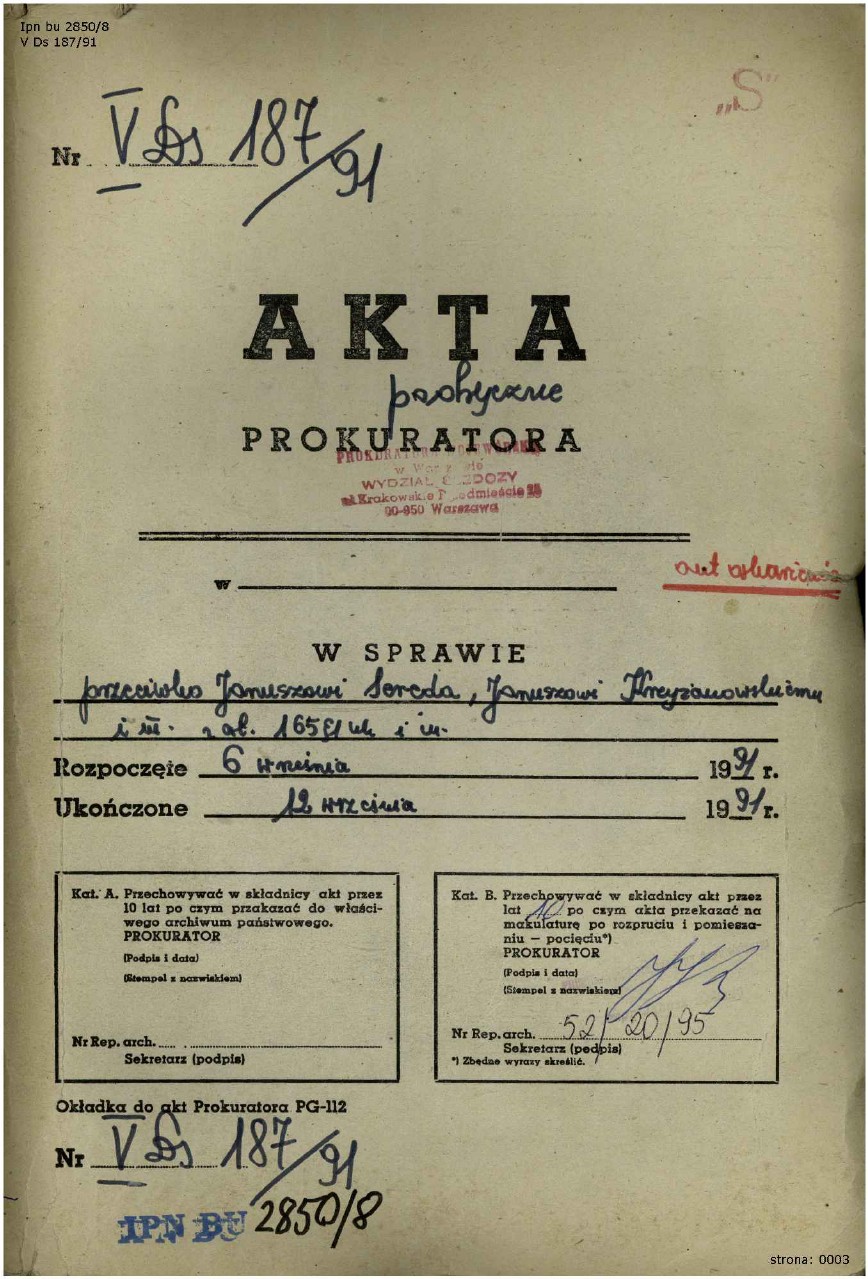 Ipn bu 2850/8
V Ds 187/91
„S”
Nr V Ds 187/91
AKTA
podręczne
PROKURATORA
PROKURATURA WOJEWÓDZKA
w Warszawie
WYDZIAŁ ŚLEDCZY
ul. Krakowskie Przedmieście 25
00-950 Warszawa
akt oskarżenia
w
W SPRAWIE
przeciwko Januszowi Sereda, Januszowi Krzyżanowskiemu
i in. z art. 165 §1 kk i in.
Rozpoczęte 6 września 1991 r.
Ukończone 12 września 1991 r.
Kat. A. Przechowywać w składnicy akt przez
10 lat po czym przakazać do właści-
wego archiwum państwowego.
PROKURATOR
(Podpis i data)
(Stempel z nazwiskiem)
Nr Rep. arch.
Sekretarz (podpis)
Kat. B. Przechowywać w składnicy akt przez
lat 10 po czym akta przekazać na
makulaturę po rozpruciu i pomiesza-
niu — pocięciu*)
PROKURATOR
(Podpis i data)
(Stempel z nazwiskiem)
Nr Rep. arch. 52/20/95
Sekretarz (podpis)
*) Zbędne wyrazy skreślić.
Okładka do akt Prokuratora PG-112
Nr V Ds 187/91
IPN BU 2850/8
strona: 0003